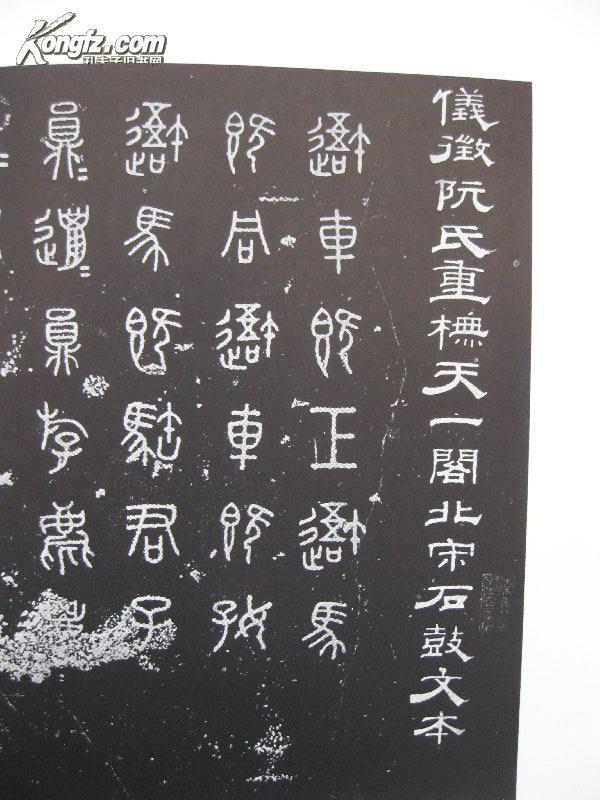 Kongfz.com
孔夫子旧书网
儀徵阮氏重橅天一閣北宋石鼓文本
避車既工避馬
既同避車既好
避馬既駐君子
員=邋=員斿麀